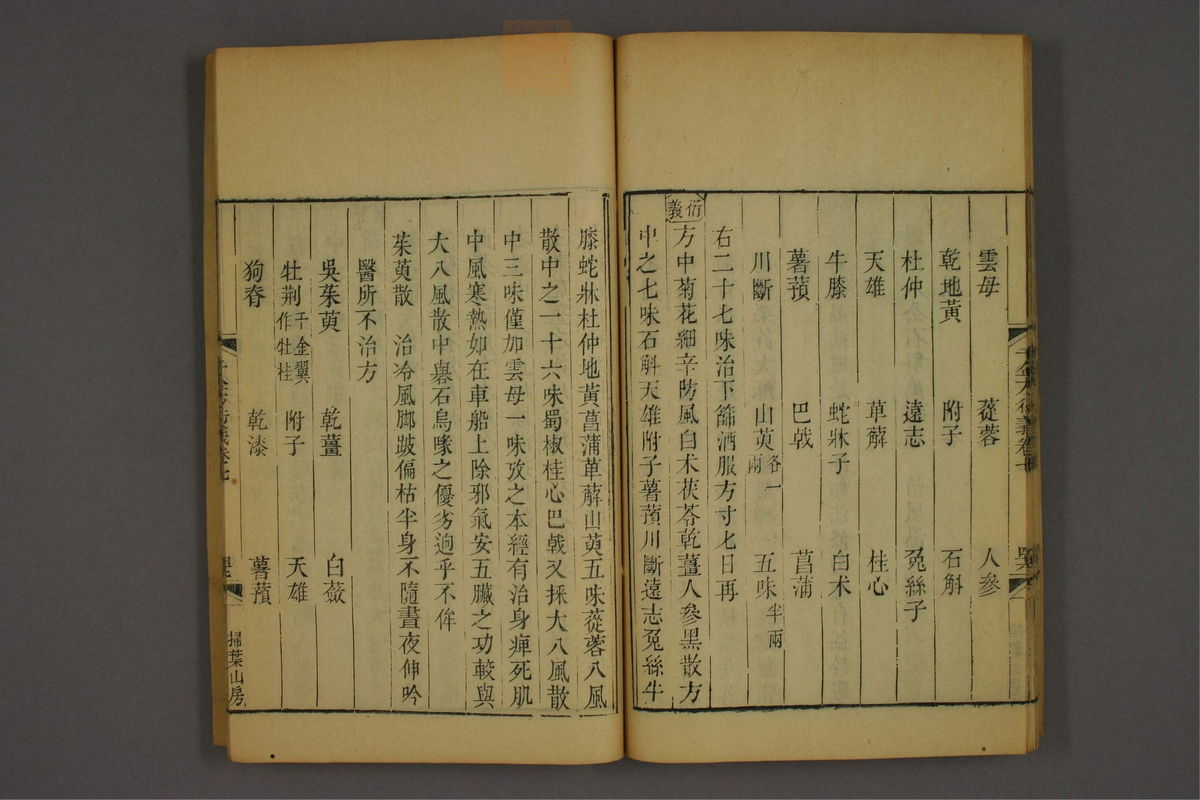 雲母 蓯蓉 人參
乾地黃 附子 石斛
杜仲 遠志 菟絲子
天雄 萆薢 桂心
牛膝 蛇牀子 白术
薯蕷 巴戟 菖蒲
川斷 山萸各一兩 五味半兩
右二十七味治下篩酒服方寸七日再
衍義
方中菊花細辛防風白术茯苓乾薑人參黑散方
中之七味石斛天雄附子薯蕷川斷遠志菟絲牛
膝蛇牀杜仲地黃菖蒲萆薢山萸五味蓯蓉八風
散中之一十六味蜀椒桂心巴戟又採大八風散
中三味僅加雲母一味攷之本經有治身痺死肌
中風寒熱如在車船上除邪氣安五臟之功較與
大八風散中礜石烏喙之優劣迥乎不侔
茱萸散 治冷風腳跛偏枯半身不隨晝夜伸吟
醫所不治方
吳茱萸 乾薑 白蘞
牡荆千金翼作牡桂 附子 天雄
狗脊 乾漆 薯蕷
掃葉山房